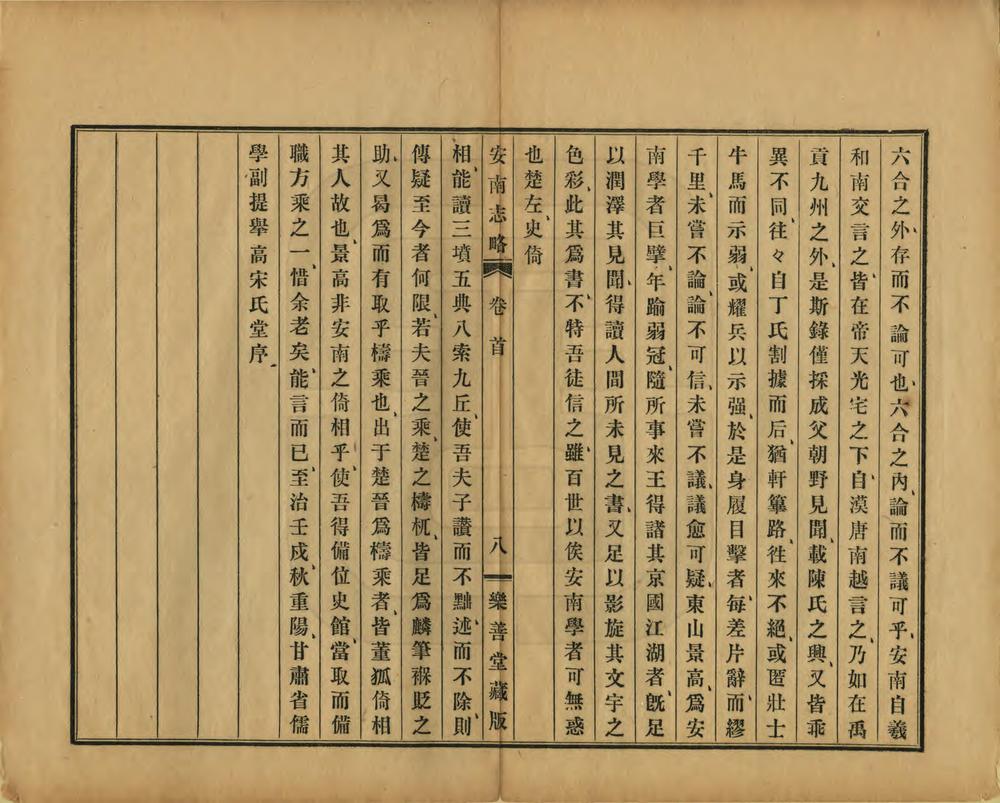 六合之外、存而不論可也、六合之內、論而不議可乎、安南自羲
和南交言之、皆在帝天光宅之下、自漠唐南越言之、乃如在禹
貢九州之外、是斯錄僅採成父朝野見聞、載陳氏之興、又皆乖
異不同、往々自丁氏割據而后、猶軒篳路、徃來不絕、或匿壯士
牛馬而示弱、或耀兵以示强、於是身履目擊者、每差片辭、而繆
千里、未嘗不論、論不可信、未嘗不議、議愈可疑、東山景高、爲安
南學者巨擘、年踰弱冠、隨所事來王得諸其京國江湖者、旣足
以潤澤其見聞、得讀人間所未見之書、又足以影旋其文字之
色彩、此其爲書、不特吾徒信之、雖百世以俟安南學者可無惑
也、楚左、史倚
安南志略 卷首 八 樂善堂藏版
相、能讀三墳五典八索九丘、使吾夫子讃而不黜、述而不除、則
傳疑至今者何限、若夫晉之乘、楚之檮杌、皆足爲麟筆褓貶之
助、又曷爲而有取乎檮乘也、出于楚晉爲檮乘者、皆董狐倚相
其人故也、景高非安南之倚相乎、使吾得備位史館、當取而備
職方乘之一、惜余老矣、能言而已、至治壬戍、秋重陽、甘肅省儒
學副提舉高宋氏堂序、